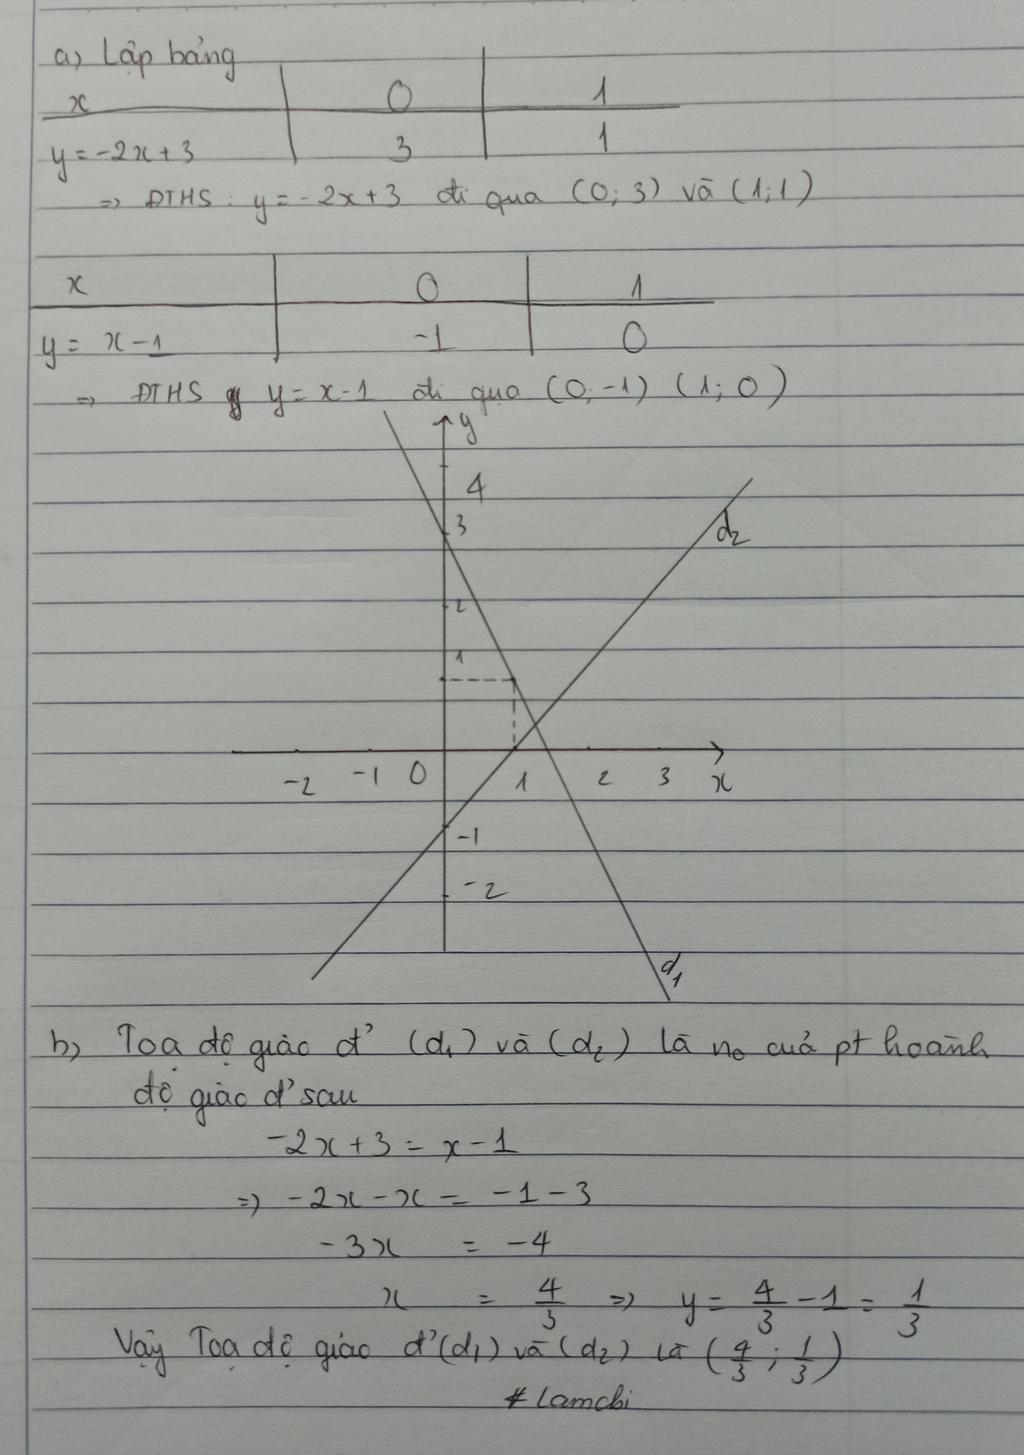 a) Lập bảng
x 0 1
y = -2x + 3 3 1
=> ĐTHS : y = -2x + 3 đi qua (0; 3) và (1; 1)
x 0 1
y = x - 1 -1 0
=> ĐTHS y = x - 1 đi qua (0; -1) (1; 0)
y
4
3
d2
2
1
-2 -1 0 1 2 3 x
-1
-2
d1
b) Toạ độ giao đ' (d1) và (d2) là no của pt hoành
độ giao đ' sau
-2x + 3 = x - 1
=> -2x - x = -1 - 3
-3x = -4
x = 4/3 => y = 4/3 - 1 = 1/3
Vậy Toạ độ giao đ' (d1) và (d2) là (4/3 ; 1/3)
# Lamchi